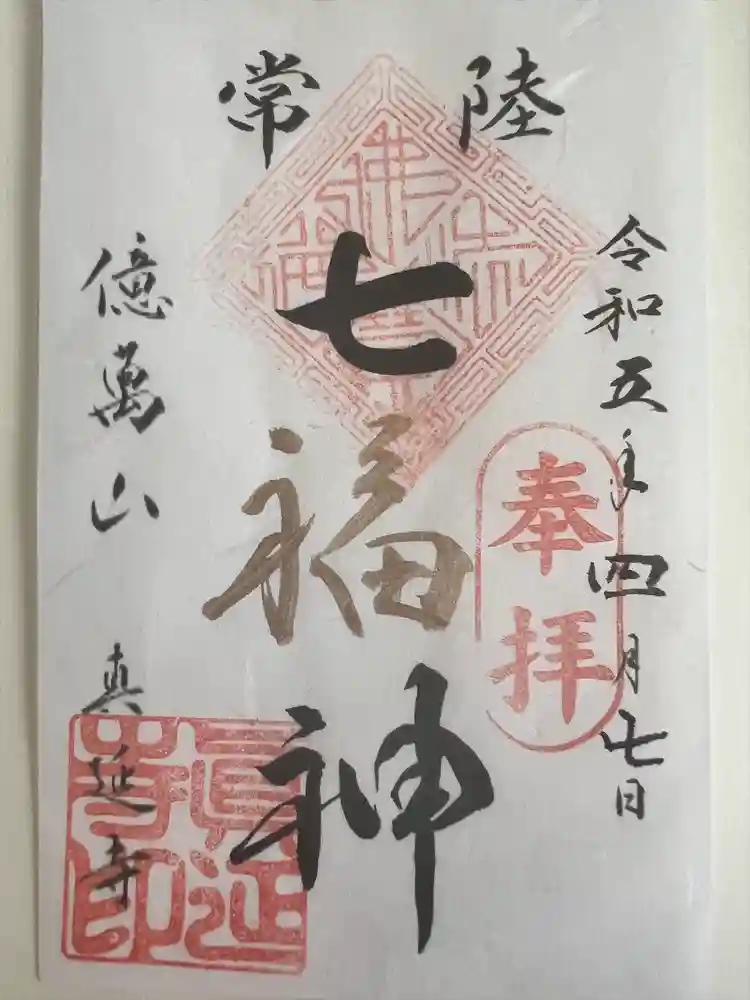 令和五年四月七日
奉拝
常陸
七福神
億萬山 真延寺
眞延寺印